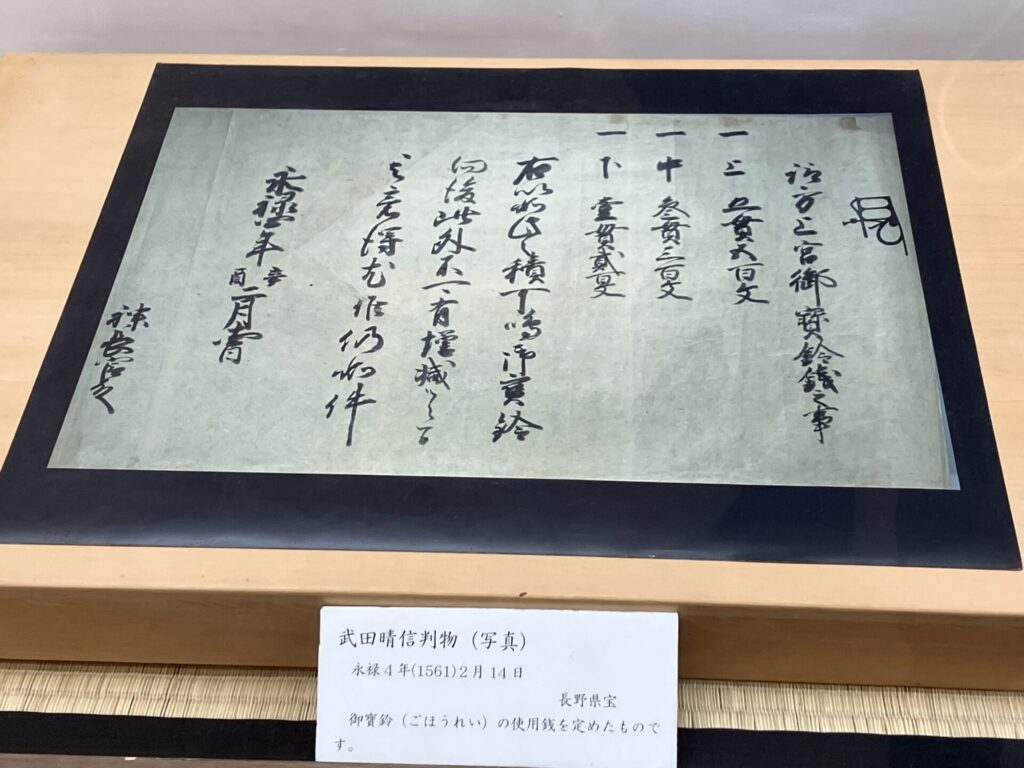 諏方上宮御寶鈴銭之事
一 上 五貫五百文
一 中 参貫三百文
一 下 壹貫貳百文
右以如此之積可鳴御寶鈴
向後此外不可有増減之旨
被定候也仍如件
永禄四年辛酉二月
武田晴信判物(写真)
永禄4年(1561)2月14日
長野県宝
御寶鈴(ごほうれい)の使用銭を定めたものです。